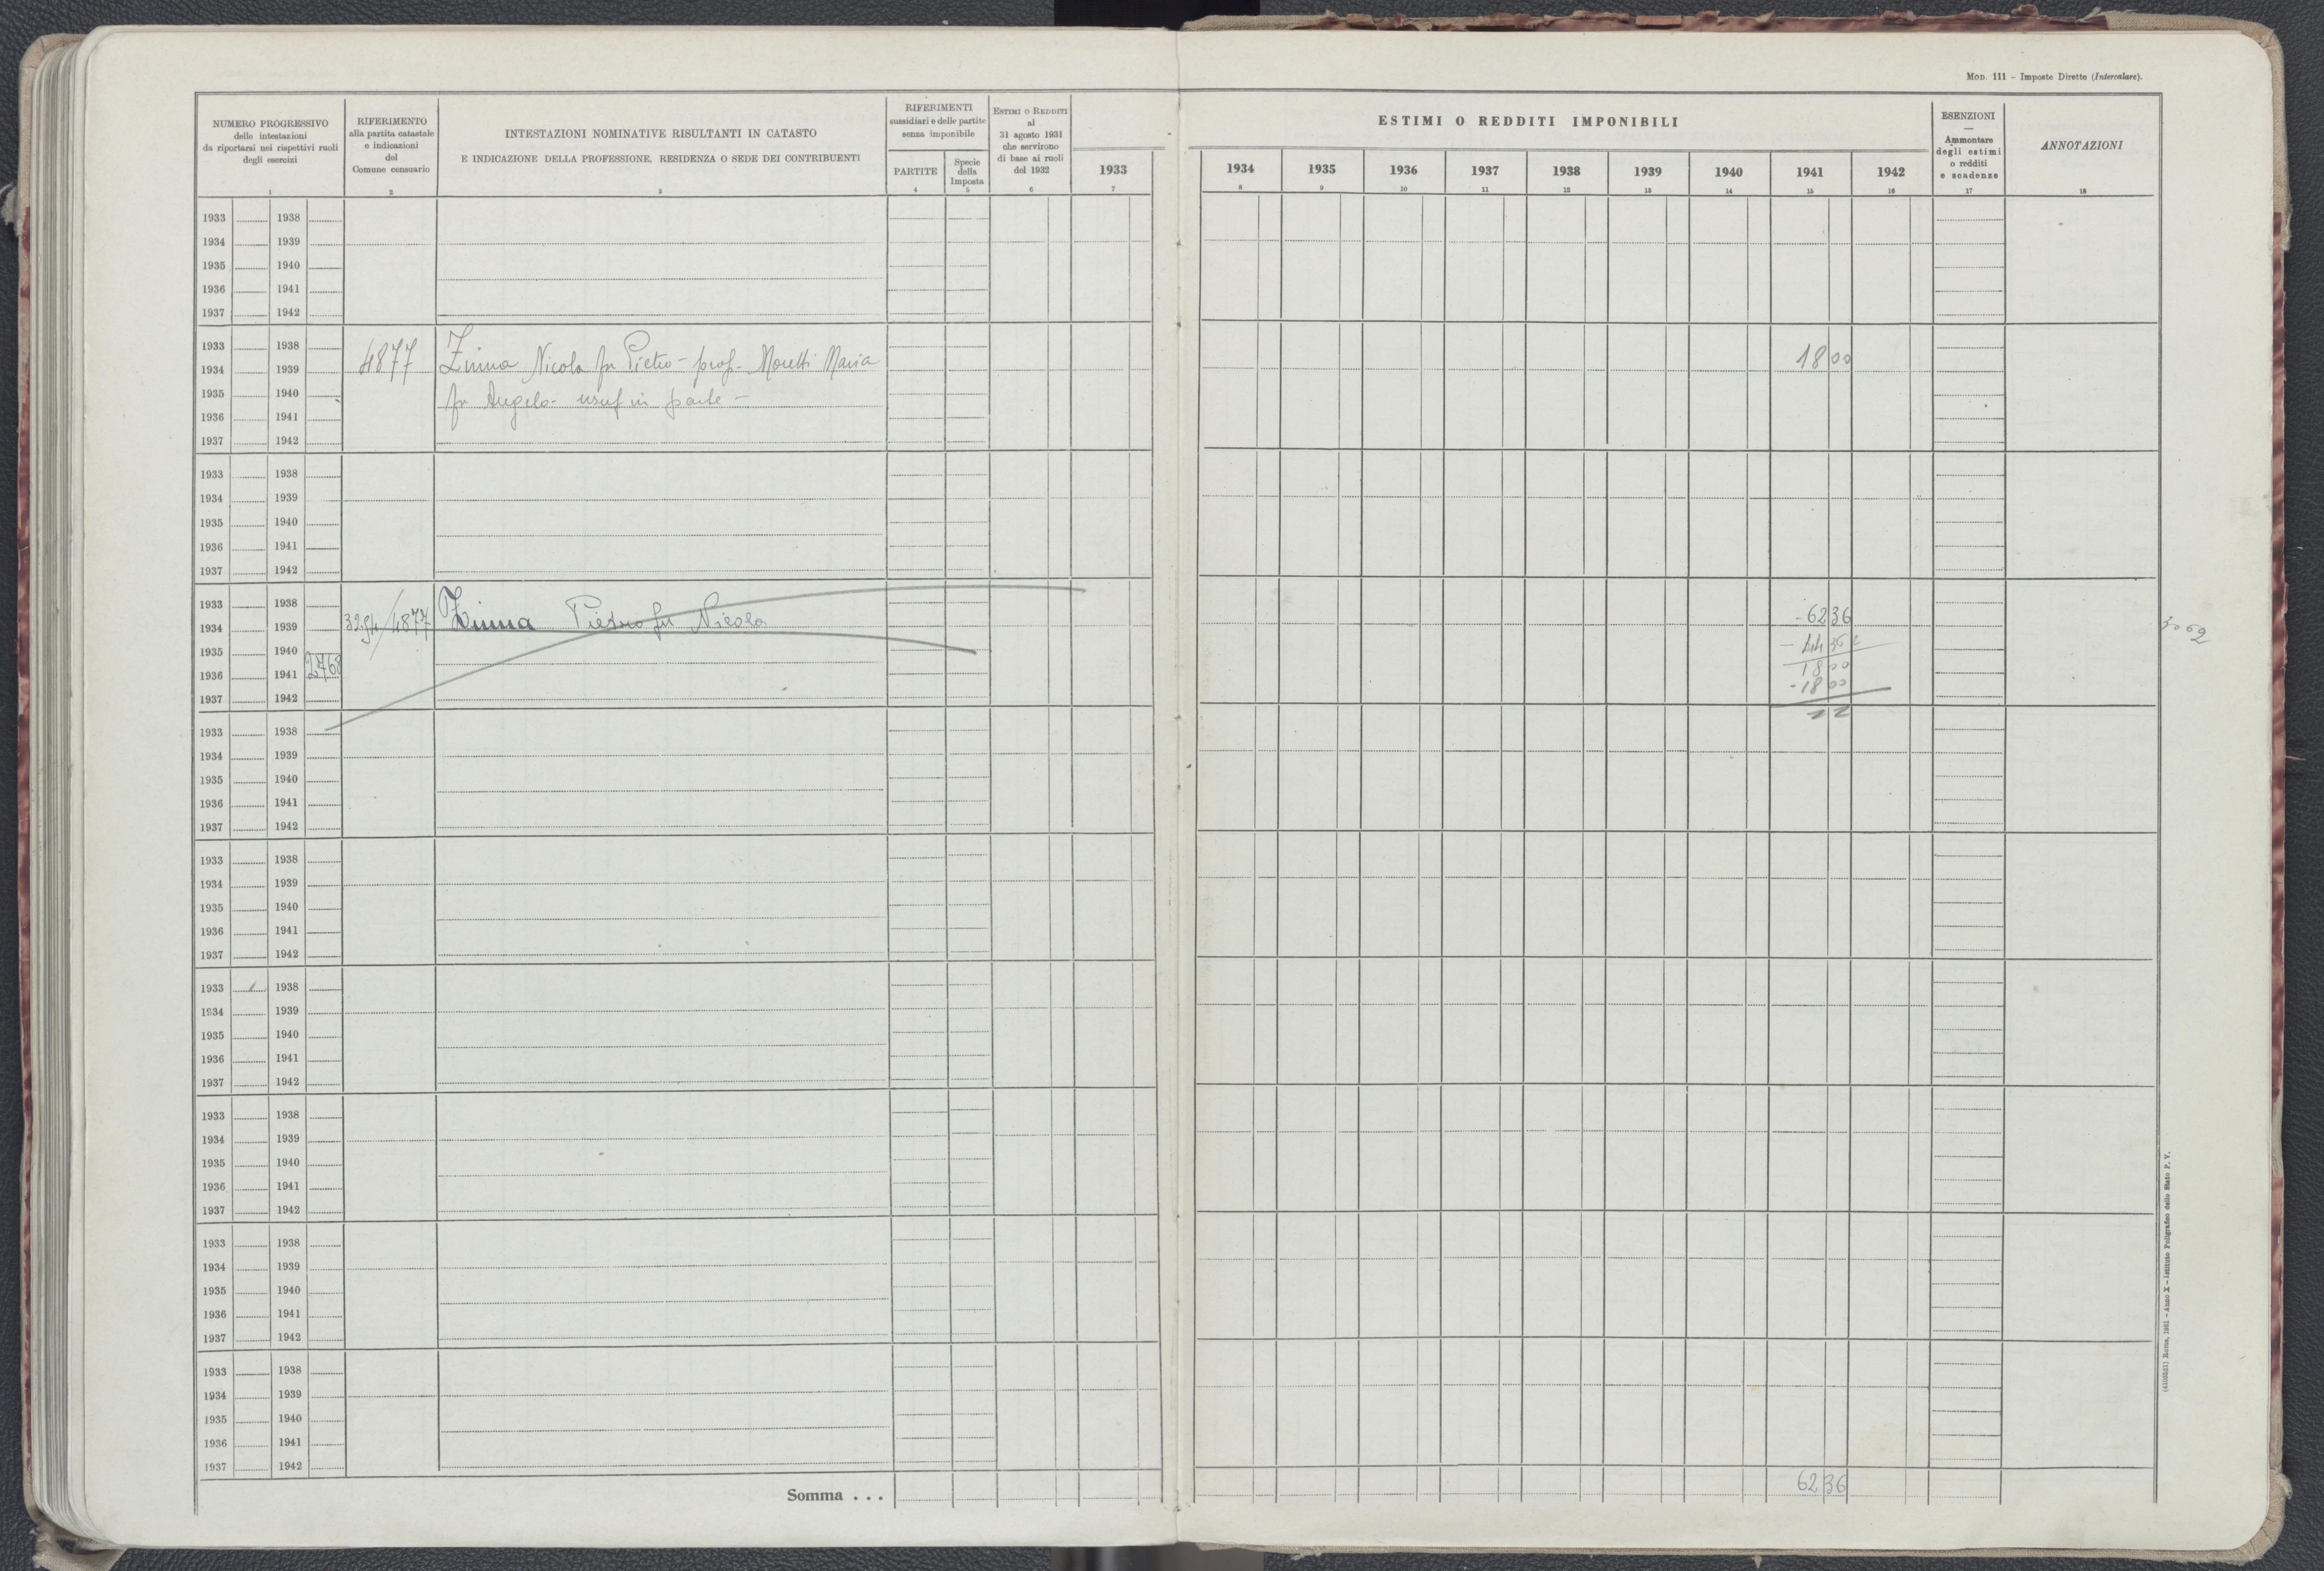 MOD. 111 - Imposte Dirette (Intercalare).
NUMERO PROGRESSIVO
delle intestazioni
da riportarsi nei rispettivi ruoli
degli esercizi
1
RIFERIMENTO
alla partita catastale
e indicazioni
del
Comune censuario
2
INTESTAZIONI NOMINATIVE RISULTANTI IN CATASTO
E INDICAZIONE DELLA PROFESSIONE, RESIDENZA O SEDE DEI CONTRIBUENTI
3
RIFERIMENTI
sussidiari e delle partite
senza imponibile
PARTITE
4
Specie
della
Imposta
5
ESTIMI O REDDITI
al
31 agosto 1931
che servirono
di base ai ruoli
del 1932
6
1933
7
ESTIMI O REDDITI IMPONIBILI
1934 1935 1936 1937 1938 1939 1940 1941 1942
8 9 10 11 12 13 14 15 16
ESENZIONI
—
Ammontare
degli estimi
o redditi
e scadenze
17
ANNOTAZIONI
18
1933 1938
1934 1939
1935 1940
1936 1941
1937 1942
1933 1938
1934 1939 4877 Zinna Nicola fu Pietro - prop. Moretti Maria 1800
1935 1940 fu Angelo - usuf in parte -
1936 1941
1937 1942
1933 1938
1934 1939
1935 1940
1936 1941
1937 1942
1933 1938
1934 1939 3294/4877 Zinna Pietro fu Nicola - 6236
1935 1940
1936 1941 2768 1800
1937 1942 - 1800
1933 1938
1934 1939
1935 1940
1936 1941
1937 1942
1933 1938
1934 1939
1935 1940
1936 1941
1937 1942
1933 1938
1934 1939
1935 1940
1936 1941
1937 1942
1933 1938
1934 1939
1935 1940
1936 1941
1937 1942
1933 1938
1934 1939
1935 1940
1936 1941
1937 1942
1933 1938
1934 1939
1935 1940
1936 1941
1937 1942
Somma . . . 6236
Roma, 1931 - Anno X - Istituto Poligrafico dello Stato P. V.